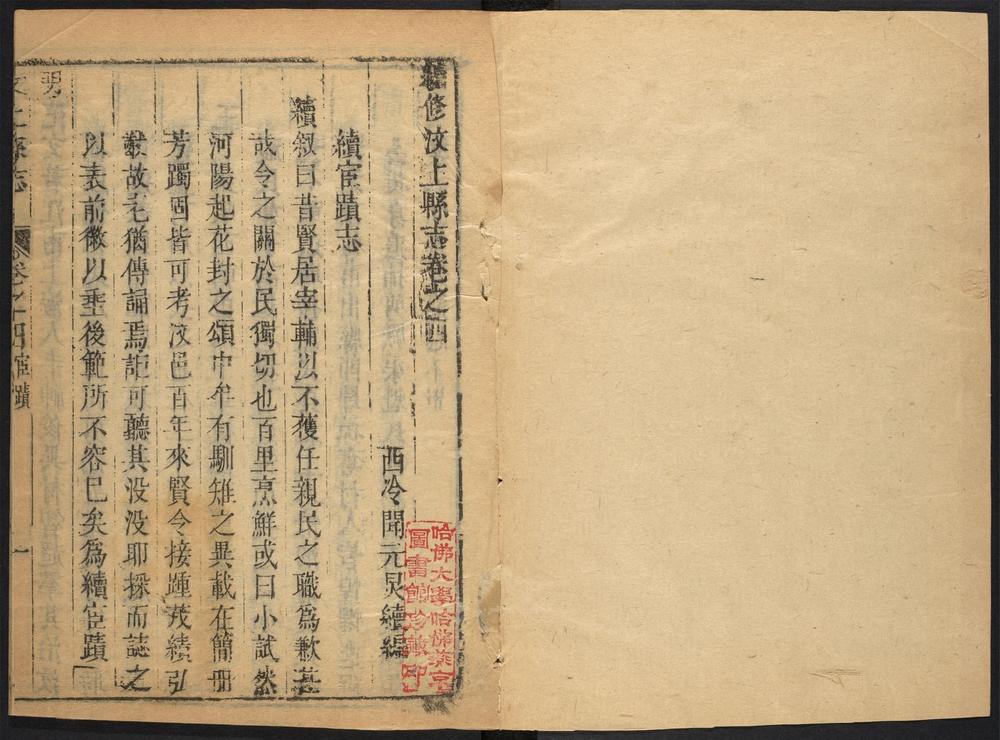 續修汶上縣志卷之四
西冷聞元炅續編
續宦蹟志
續叙曰昔賢居宰輔以不獲任親民之職爲歉甚
哉令之關於民獨切也百里烹鮮或曰小試然
河陽起花封之頌中牟有馴雉之異載在簡冊
芳躅固皆可考汶邑百年來賢令接踵茂績弘
猷故老猶傳誦焉詎可聽其没没耶採而誌之
以表前徽以垂後範所不容已矣爲續宦蹟
汶上縣志
卷之四宦蹟
一
哈佛大學哈佛燕京
圖書館珍藏印